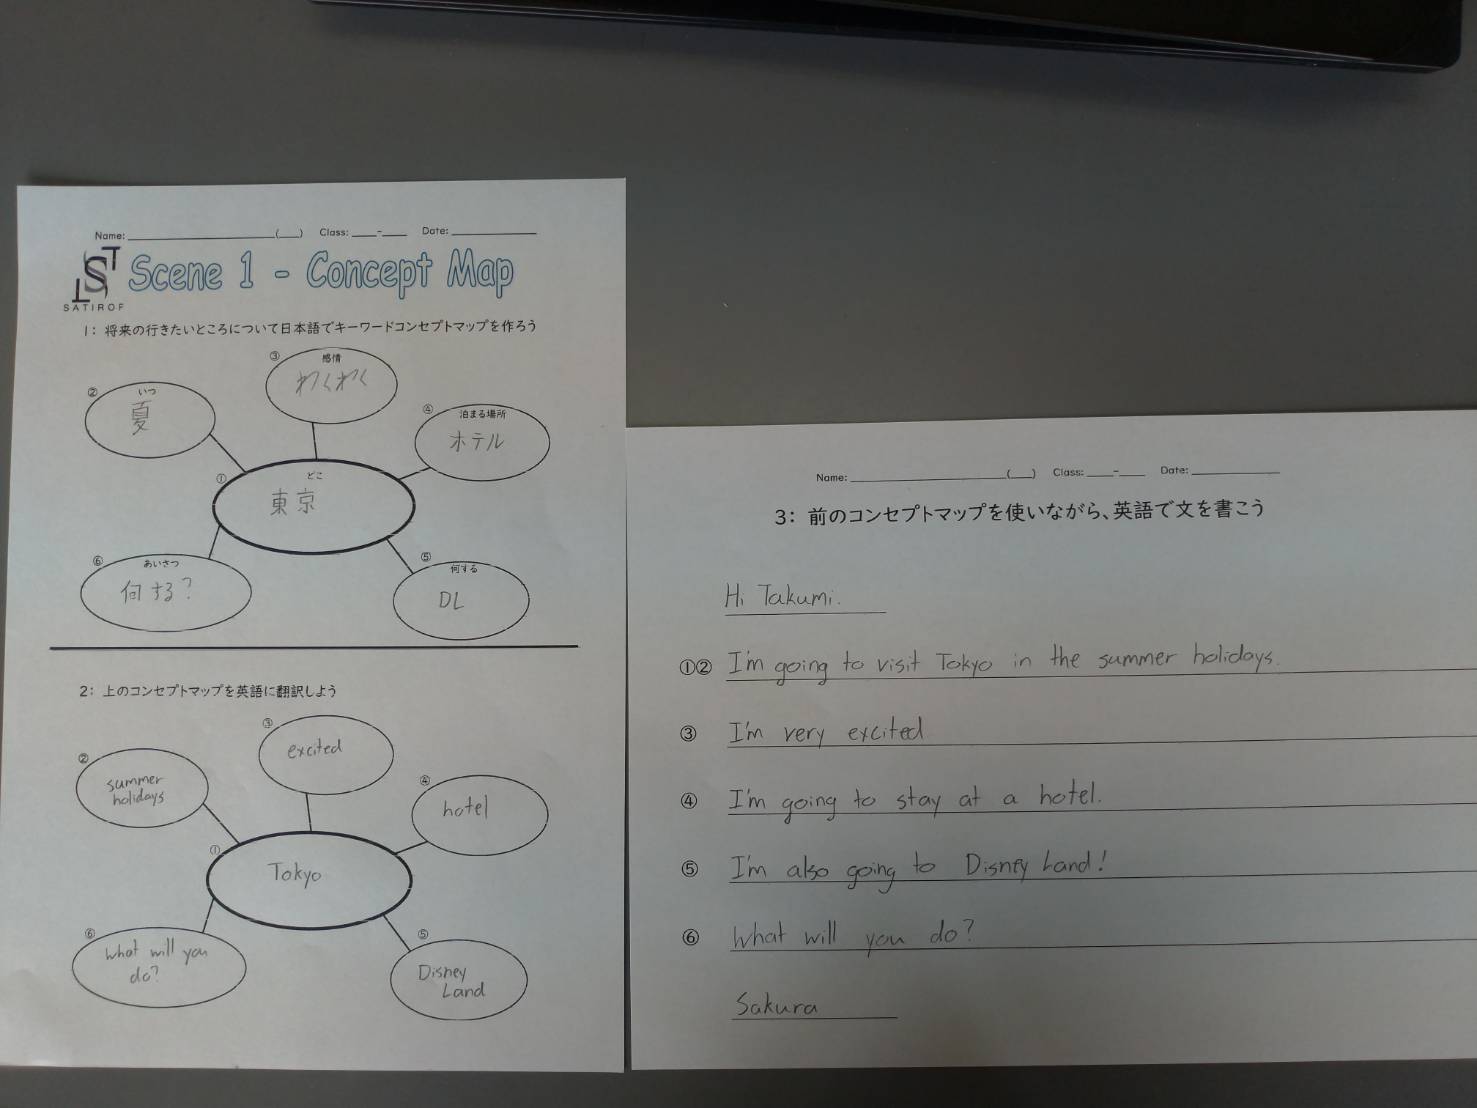 Name: ( ) Class: - Date:
SATIROF
Scene 1 - Concept Map
1: 将来の行きたいところについて日本語でキーワードコンセプトマップを作ろう
③ 感情
わくわく
② いつ
夏
④ 泊まる場所
ホテル
① どこ
東京
⑥ あいさつ
何する?
⑤ 何する
DL
2: 上のコンセプトマップを英語に翻訳しよう
③
excited
②
summer
holidays
④
hotel
①
Tokyo
⑥
what will you
do?
⑤
Disney
Land
Name: ( ) Class: - Date:
3: 前のコンセプトマップを使いながら、英語で文を書こう
Hi Takumi.
①② I'm going to visit Tokyo in the summer holidays.
③ I'm very excited
④ I'm going to stay at a hotel.
⑤ I'm also going to Disney Land!
⑥ What will you do?
Sakura